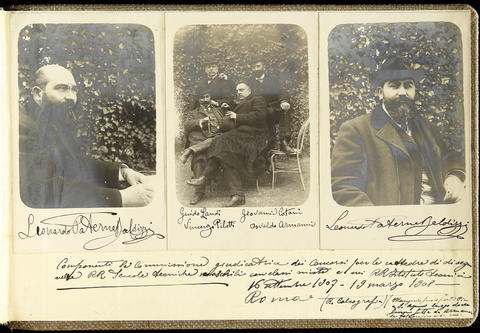 Leonardo Paterna Baldizzi
Guido Landi Giovanni
Vincenzo Pilotti Osvaldo Armanni
Leonardo Paterna Baldizzi
Componenti la Commissione giudicatrice dei Concorsi per le cattedre di disegno
nelle RR Scuole tecniche maschili con classi miste e nei RR Istituti tecnici
16 settembre 1907 - 19 marzo 1908
Roma (R. Calcografia)